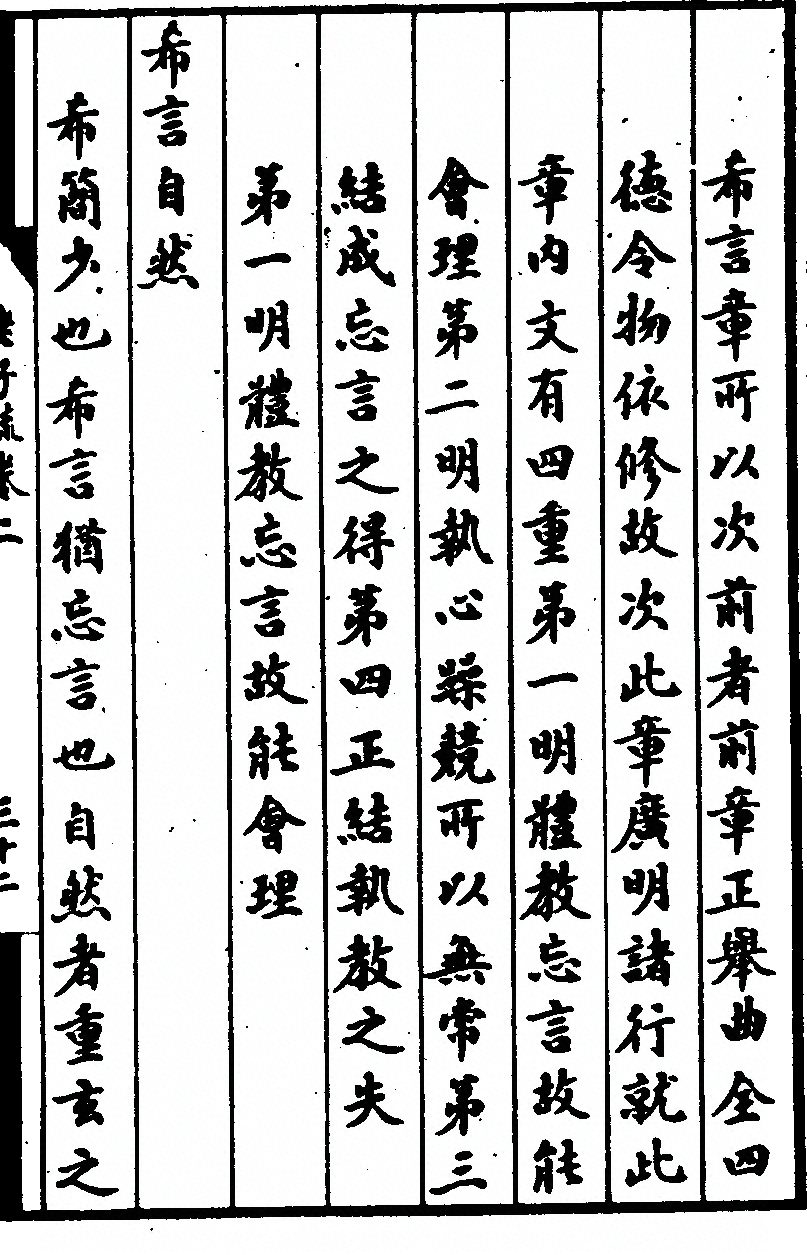 希言章所以次前者前章正舉曲全四
德令物依修故次此章廣明諸行就此
章內文有四重第一明體教忘言故能
會理第二明執心躁競所以無常第三
結成忘言之得第四正結執教之失
第一明體教忘言故能會理
希言自然
希簡少也希言猶忘言也自然者重玄之
老子疏卷二
三十二